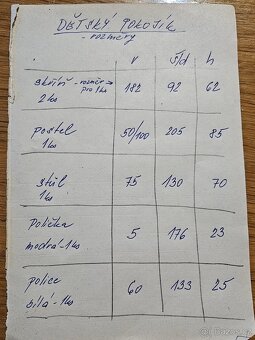 DĚTSKÝ POKOJÍK
- rozměry
v š/d h
skříň - rozměr → 182 92 62
pro 1ks
2 ks
postel 50/100 205 85
1 ks
stůl 75 130 70
1 ks
Polička 5 176 23
modrá - 1ks
police 60 133 25
bílá - 1ks